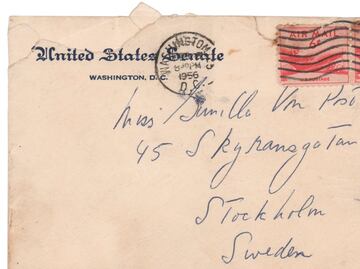 United States Senate
WASHINGTON, D.C.
WASHINGTON
1956
D.C.
AIR MAIL
6¢
U.S. POSTAGE
Miss Gunilla Von Post
45 Skyransgatan
Stockholm
Sweden